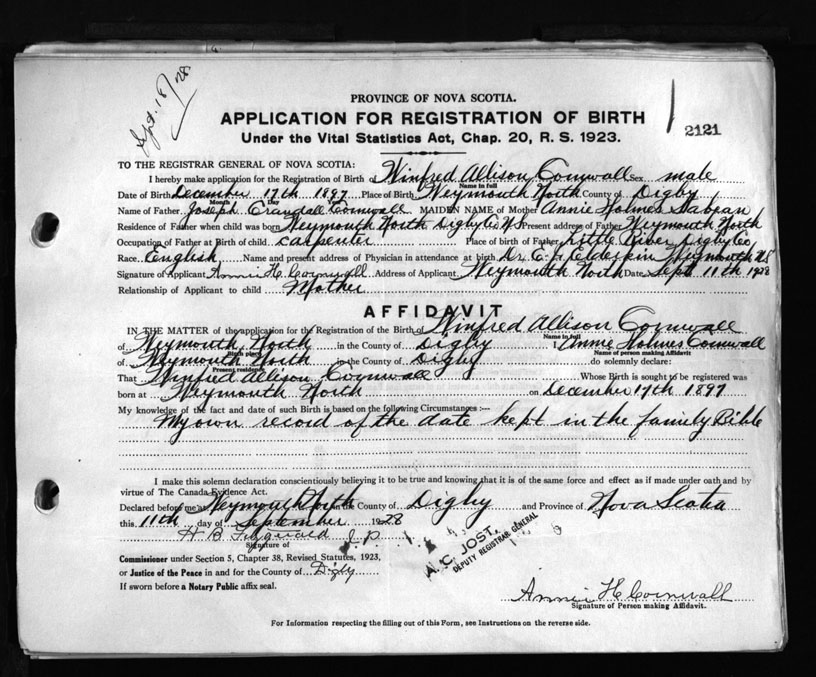 Sept. 18/28
PROVINCE OF NOVA SCOTIA.
APPLICATION FOR REGISTRATION OF BIRTH
2121
Under the Vital Statistics Act, Chap. 20, R. S. 1923.
TO THE REGISTRAR GENERAL OF NOVA SCOTIA:
I hereby make application for the Registration of Birth of Winfred Allison Cornwall Sex male
Name in full
Date of Birth December 17th 1897 Place of Birth Weymouth North County of Digby
Month Day Year
Name of Father Joseph Crandall Cornwall MAIDEN NAME of Mother Annie Holmes Sabean
Residence of Father when child was born Weymouth North Digby Co NS Present address of Father Weymouth North
Occupation of Father at Birth of child carpenter Place of birth of Father Little River Digby Co
Race English Name and present address of Physician in attendance at birth Dr. E. J. Elderkin Weymouth NS
Signature of Applicant Annie H. Cornwall Address of Applicant Weymouth North Date Sept 11th 1928
Relationship of Applicant to child Mother
AFFIDAVIT
IN THE MATTER of the application for the Registration of the Birth of Winfred Allison Cornwall
Name in full
of Weymouth North in the County of Digby I Annie Holmes Cornwall
Birth place Name of person making Affidavit
of Weymouth North in the County of Digby do solemnly declare:
Present residence
That Winfred Allison Cornwall Whose Birth is sought to be registered was
born at Weymouth North on December 17th 1897
My knowledge of the fact and date of such Birth is based on the following Circumstances :—
My own record of the date kept in the family Bible
I make this solemn declaration conscientiously believing it to be true and knowing that it is of the same force and effect as if made under oath and by
virtue of The Canada Evidence Act.
Declared before me at Weymouth North in the County of Digby and Province of Nova Scotia
this 11th day of September 1928
H B Fitzgerald J. P.
Signature of
A. C. JOST,
DEPUTY REGISTRAR GENERAL
Commissioner under Section 5, Chapter 38, Revised Statutes, 1923,
or Justice of the Peace in and for the County of Digby
If sworn before a Notary Public affix seal.
Annie H Cornwall
Signature of Person making Affidavit.
For Information respecting the filling out of this Form, see Instructions on the reverse side.